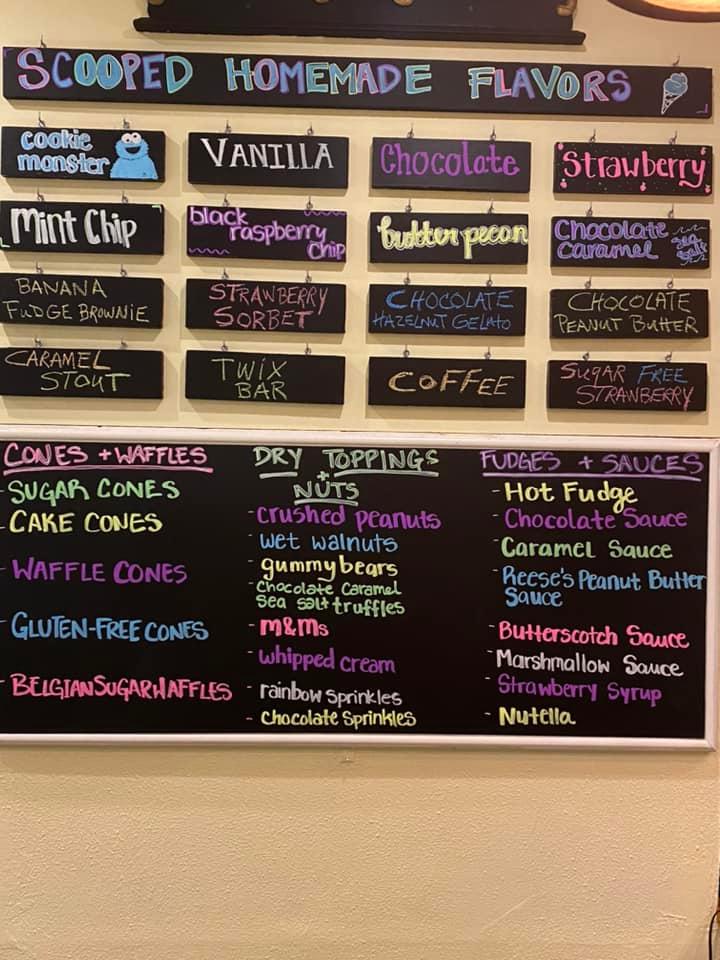 SCOOPED HOMEMADE FLAVORS
cookie
monster
VANILLA
Chocolate
Strawberry
Mint Chip
black
raspberry
chip
butter pecan
Chocolate
Caramel
Sea
Salt
BANANA
FUDGE BROWNIE
STRAWBERRY
SORBET
CHOCOLATE
HAZELNUT GELATO
CHOCOLATE
PEANUT BUTTER
CARAMEL
STOUT
TWIX
BAR
COFFEE
SUGAR FREE
STRAWBERRY
CONES + WAFFLES
- SUGAR CONES
- CAKE CONES
- WAFFLE CONES
- GLUTEN-FREE CONES
- BELGIAN SUGAR WAFFLES
DRY TOPPINGS
+
NUTS
- crushed peanuts
- wet walnuts
- gummy bears
- Chocolate Caramel
Sea Salt truffles
- M&Ms
- whipped cream
- rainbow sprinkles
- Chocolate Sprinkles
FUDGES + SAUCES
- Hot Fudge
- Chocolate Sauce
- Caramel Sauce
- Reese's Peanut Butter
Sauce
- Butterscotch Sauce
- Marshmallow Sauce
- Strawberry Syrup
- Nutella